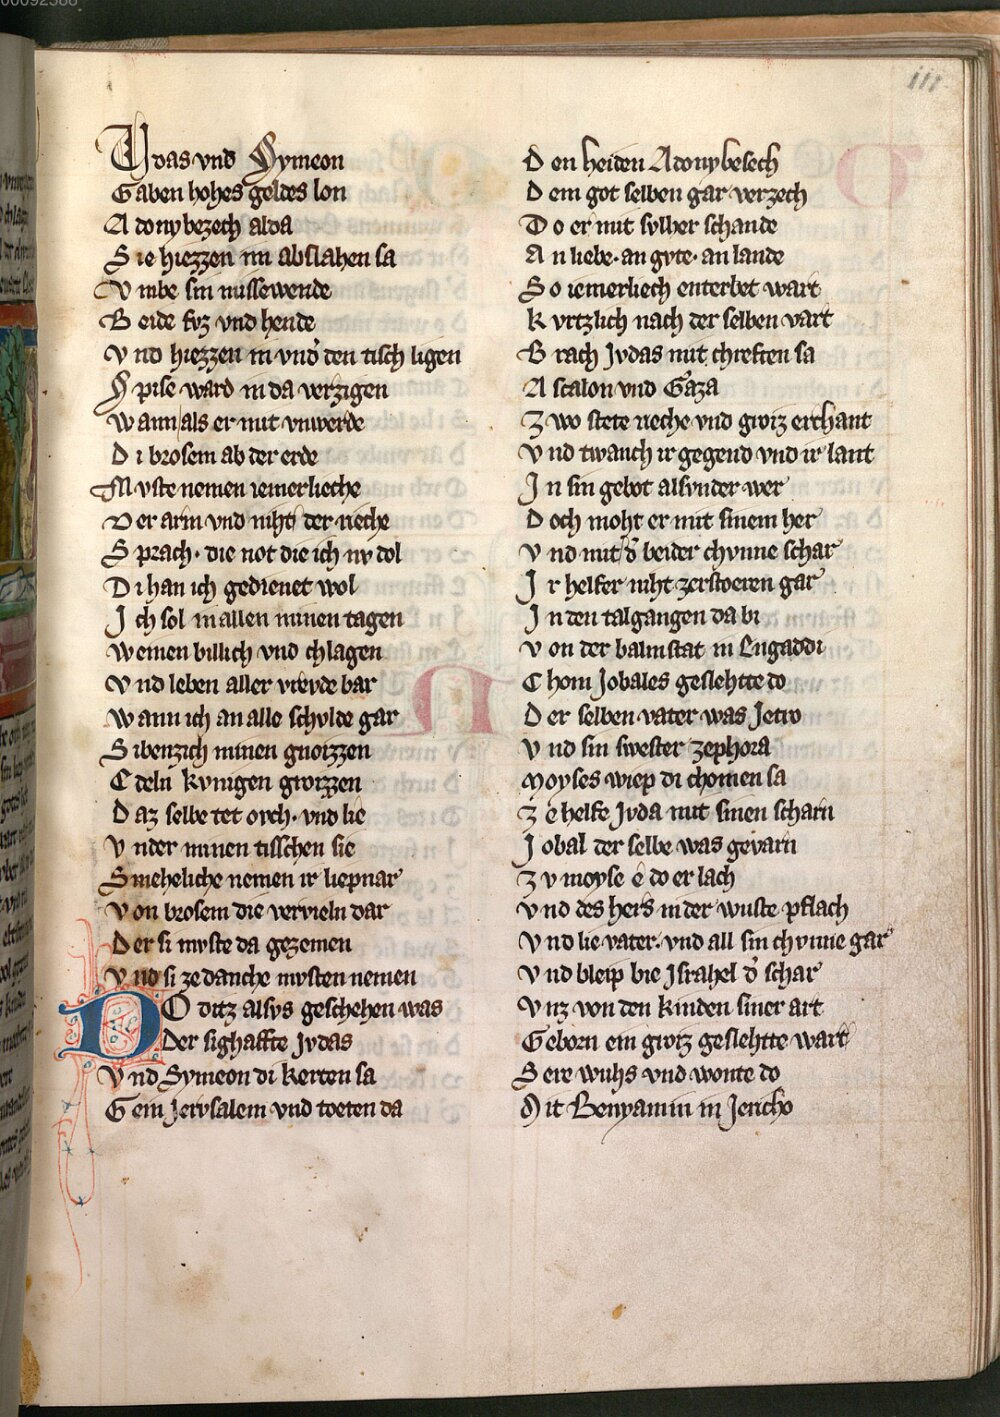 iii
Vdas vnd Symeon
Gaben hohes geldes lon
Adonybezech alda
Sie hiezzen im abslahen sa
Vmbe sin missewende
Beide fvz vnd hende
Vnd hiezzen in vnd' den tisch ligen
Spise ward in da verzigen
Wann als er mit vnwerde
Di brosem ab der erde
Mvste nemen iemerlieche
Der arm vnd niht der rieche
Sprach · die not die ich nv dol
Di han ich gedienet wol
Ich sol in allen minen tagen
Weinen billich vnd chlagen
Vnd leben aller vreyde bar
Wann ich an alle schvlde gar
Sibenzich minen gnoizzen
Edeln kvnigen groizzen
Daz selbe tet ovch · vnd lie
Vnder minen tisschen sie
Smeheliche nemen ir liepnar
Von brosem die vervieln dar
Der si mvste da gezemen
Vnd si ze danche mvsten nemen
DO ditz alsvs geschehen was
Der sighaffte Jvdas
Vnd Symeon di kerten sa
Gein Jervsalem vnd toeten da
Den heiden Adonybesech
Dem got selben gar verzech
Do er mit sylher schande
An liebe · an gvte · an lande
So iemerliech enterbet wart
Kvrtzlich nach der selben vart
Brach Jvdas mit chreften sa
Ascalon vnd Gaza
Zwo stete rieche vnd groiz erchant
Vnd twanch ir gegend vnd ir lant
In sin gebot alsvnder wer
Doch moht er mit sinem her
Vnd mit d' beider chvnne schar
Ir helfer niht zerstoeren gar
In den talgangen da bi
Von der balmstat in Engaddi
Chom Jobales geslehtte do
Der selben vater was Jetro
Vnd sin swester Zephora
Moyses wiep di chomen sa
Ze helfe Jvda mit sinen scharn
Jobal der selbe was gevarn
Zv moyse e do er lach
Vnd des hers in der wuste pflach
Vnd lie vater · vnd all sin chvnne gar
Vnd bleip bie Israhel d' schar
Vnz von den kinden siner art
Geborn ein groiz geslehtte wart
Sere wuhs vnd wonte do
Mit Benyamin in Jericho